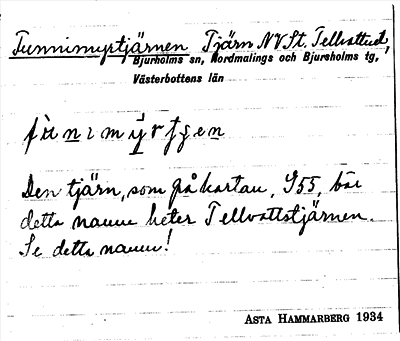 Tunnimyrtjärnen Tjärn NV St. Tellvattnet,
Bjurholms sn, Nordmalings och Bjurholms tg,
Västerbottens län
Den tjärn, som på kartan, 955, bär
detta namn heter Tellvattstjärnen.
Se detta namn!
ASTA HAMMARBERG 1934